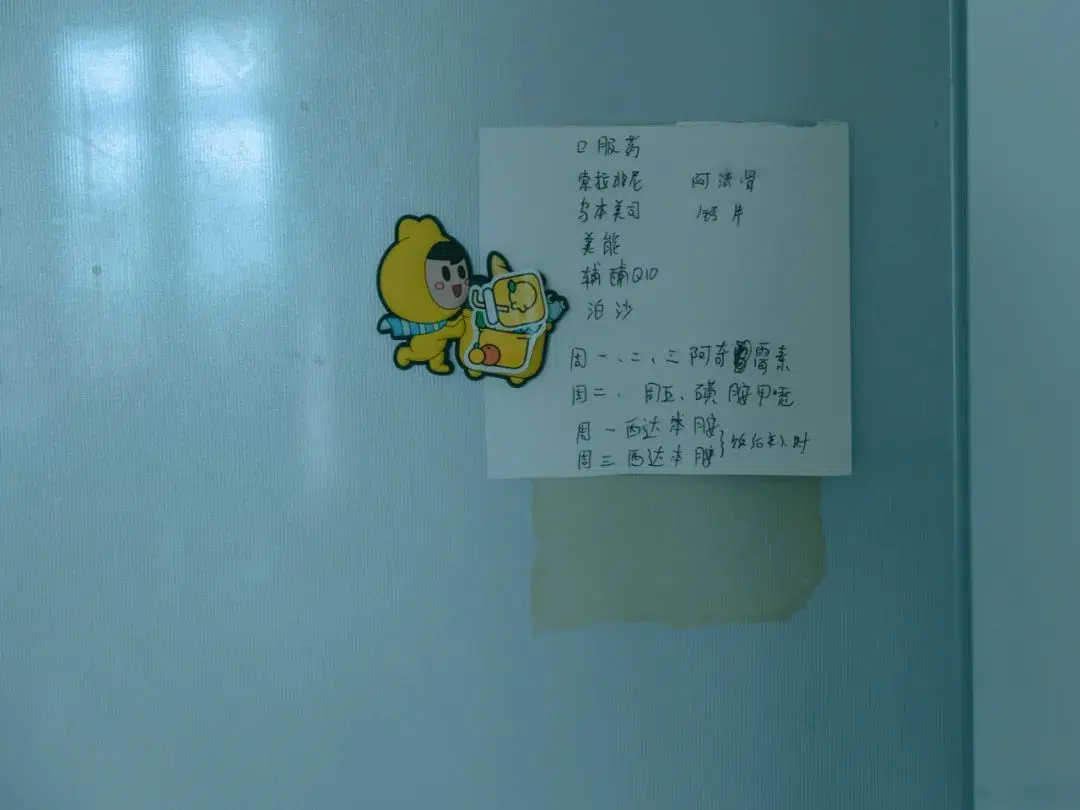 口服药
索拉非尼 阿法骨
乌苯美司 钙片
美能
辅酶Q10
泊沙
周一、二、三 阿奇霉素
周二、周五、磺胺甲噁
周一西达本胺
周三西达本胺 } 饭后半小时